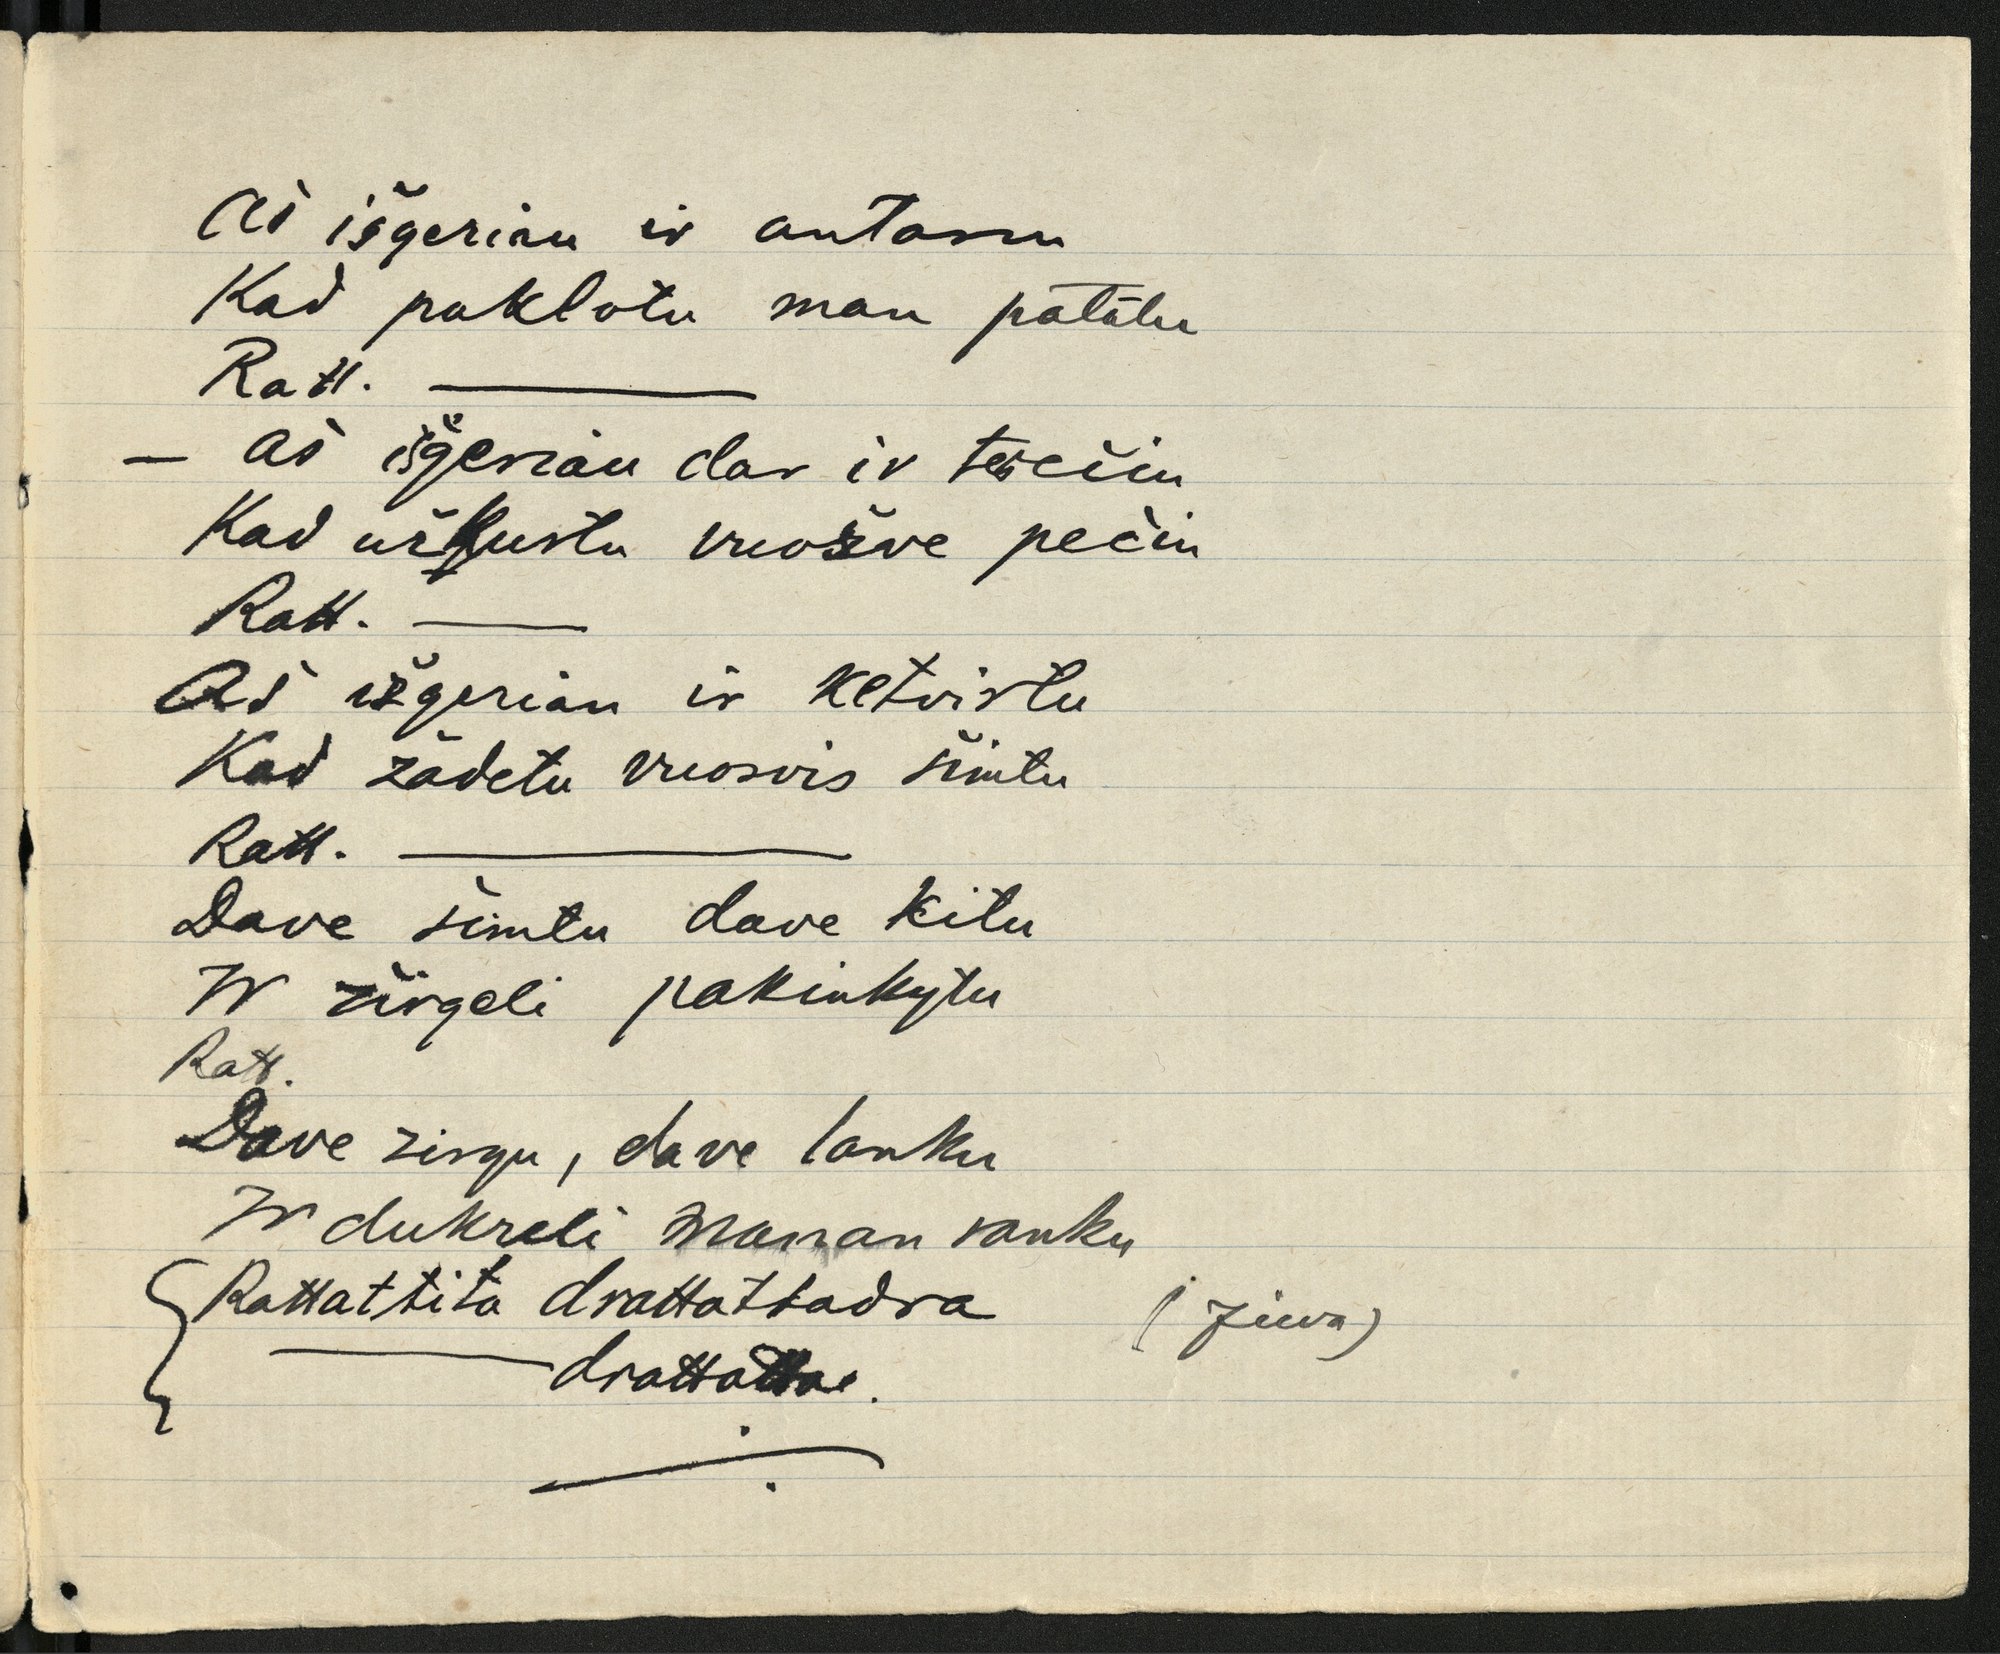 Aš išgeriau ir antaru
Kad paklotu man pātālu
Ratt. ———
— Aš išgeriau dar ir trečiu
Kad užkustu vuošve pečiu
Ratt. ———
Aš išgeriau ir ketvirtu
Kad žadetu vuosvis šimtu
Ratt. ———
Dave šimtu dave kitu
Ir žirgeli pakinkytu
Ratt.
Dave zirgu, dave lanku
Ir dukreli manan ranku
Rattattita drattattadra
——— drattattae.